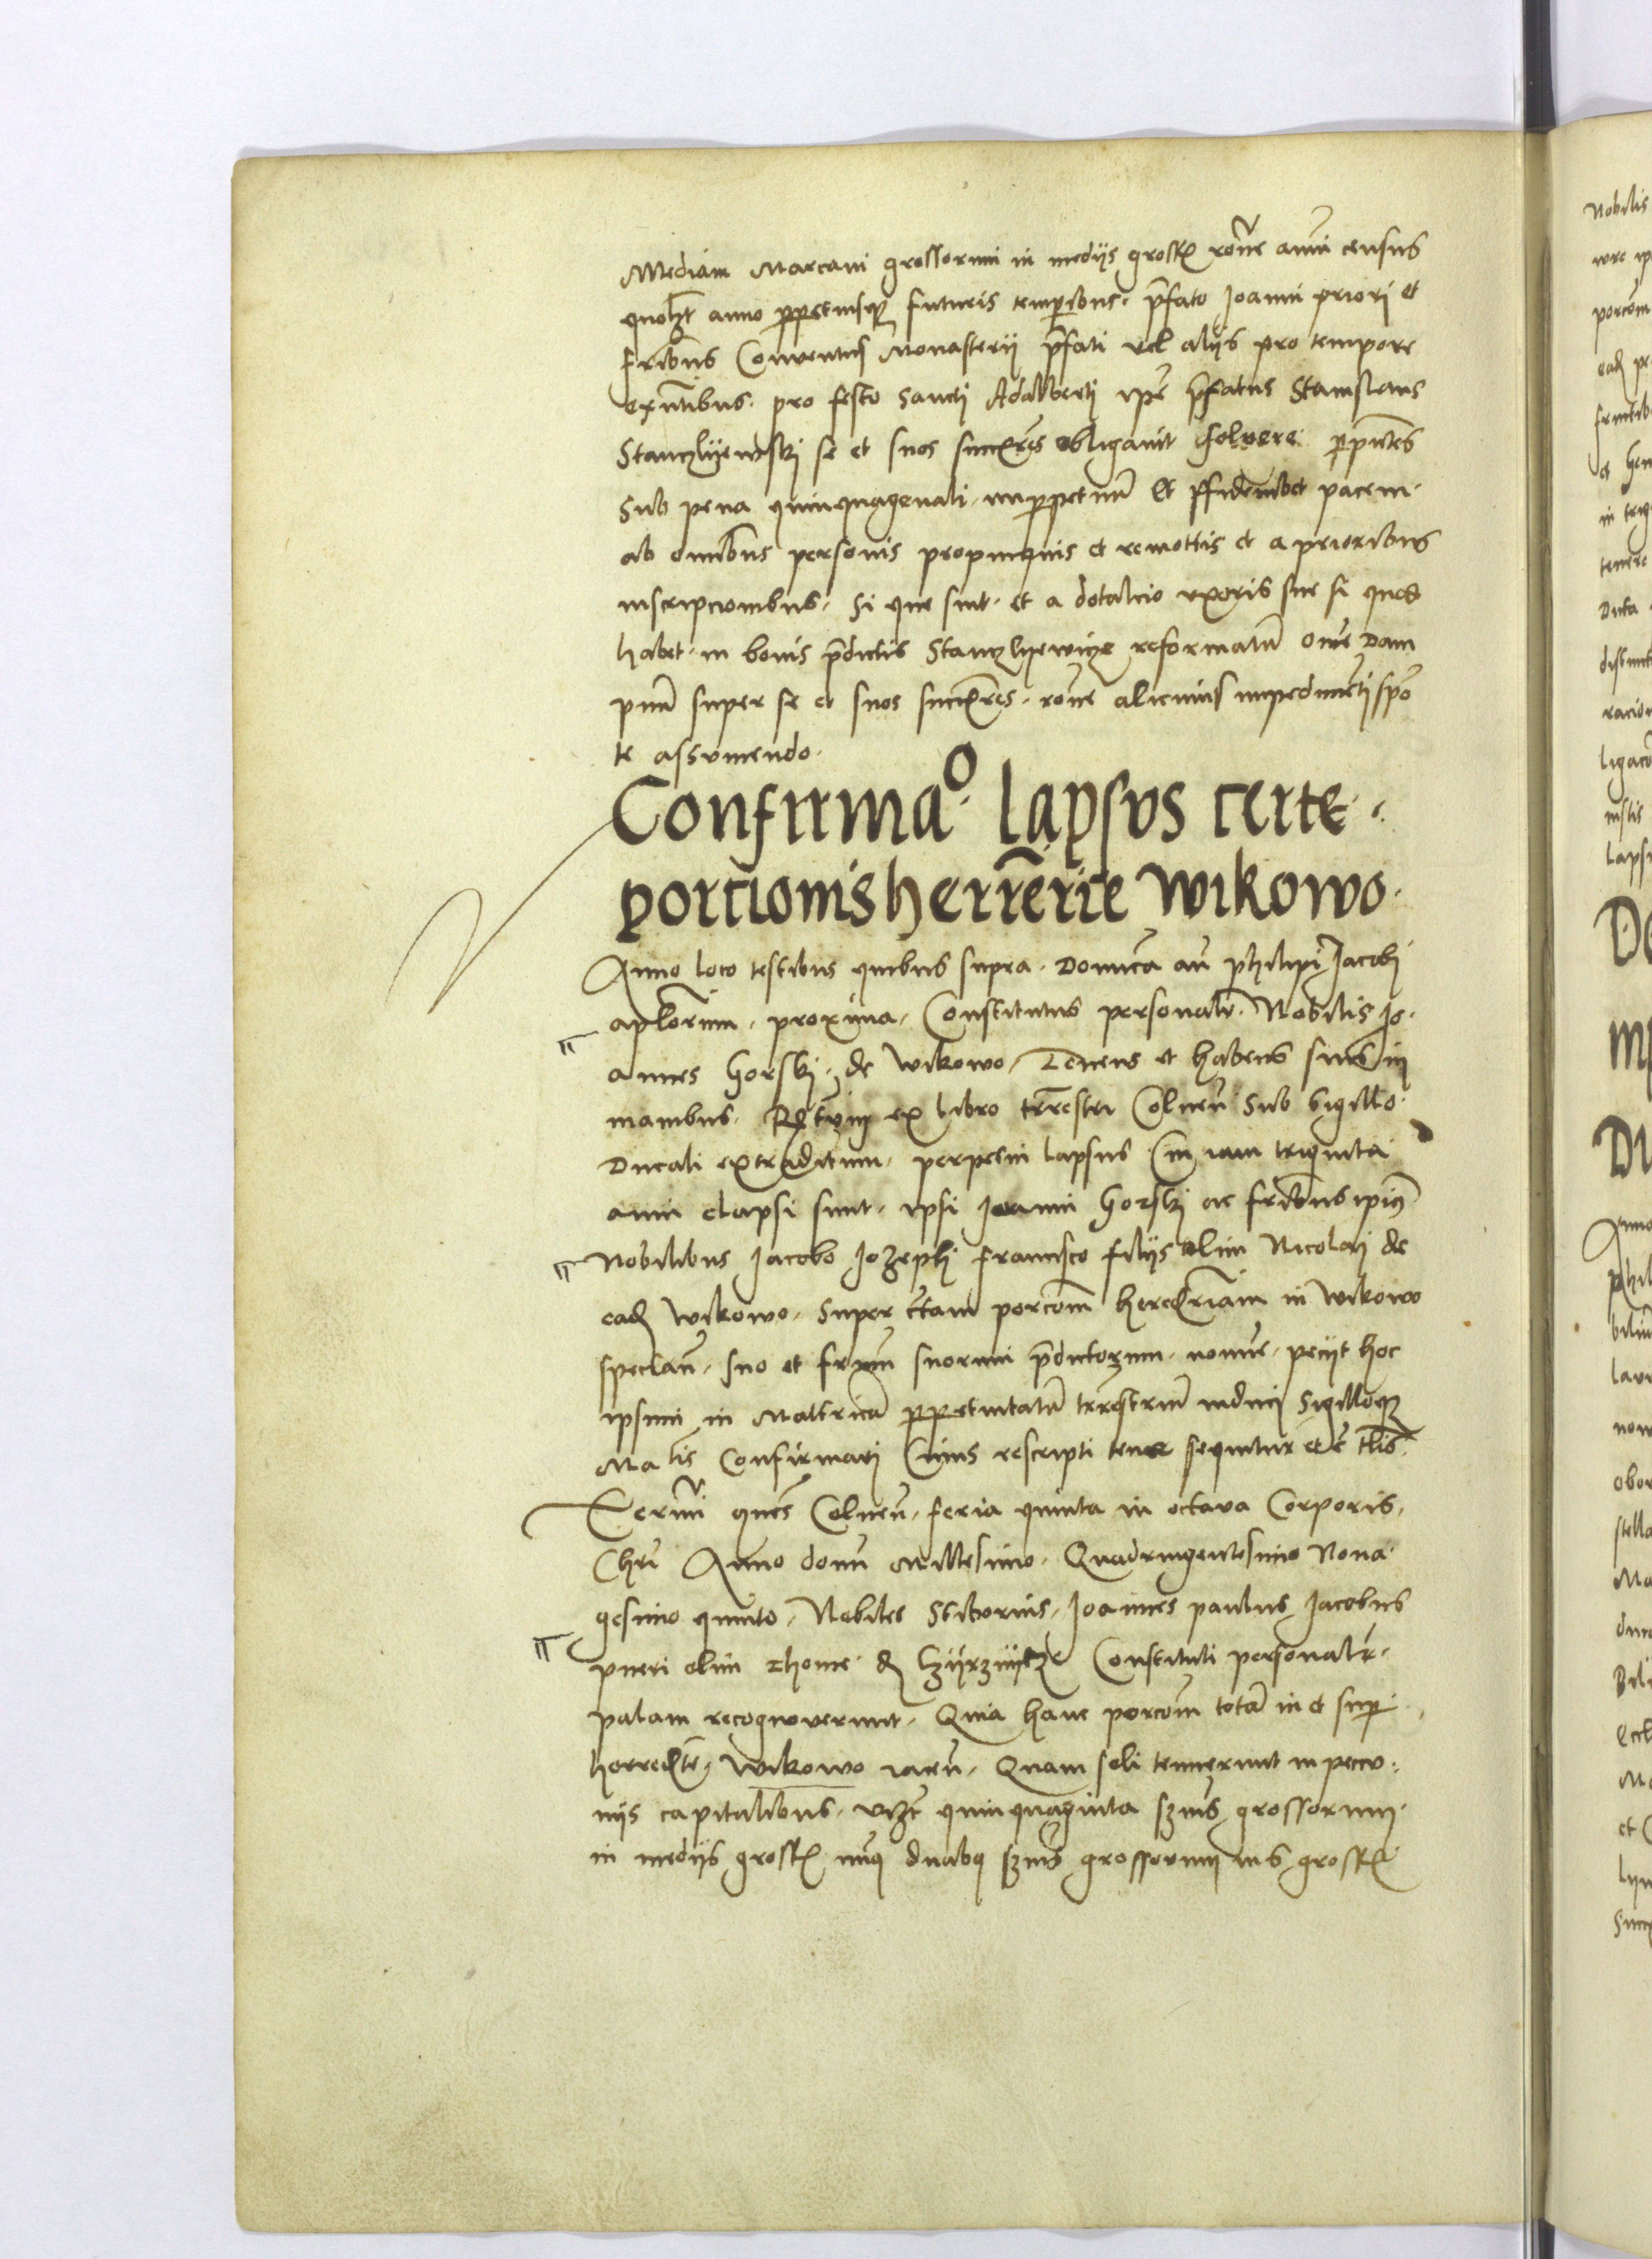 Mediam Marcam grossorum in medijs gross rone annui census
quolz anno perpetuisque futuris temporibus. pfato Joanni priori et
fribus Conventus Monasterij pfati vel alijs pro tempore
exntibus. pro festo Sancti Adalberti ipe pfatus Stanislaus
se et suos succres obligavit solvere
Sub pena quinquagenali. inperpetuu Et pacem.
ab omibus personis propinquis et remottis et a prioribus
inscripcionibus. Si que sint. et a dotalicio uxoris sue si quod
habet. in bonis pdictis Stanczlyewicze reformatu Ome Dam
pnu super se et suos succres. rone alicuius impedimeti spo
te assumendo.
Confirmao. lapsus certe.
porcionis herrerie Wikowo.
Anno loco testibus quibus supra. Domica an Philipi Jacobi
aplorum. proxima. Constitutus personalr. Nobilis Jo.
annes Gorski. de Wikowo. Tenens et habens suis in
manibus. ex libro trrestri Colnen Sub Sigillo.
Ducali extraditum. perpetui lapsus Cui iam triginta
anni elapsi sunt. ipsi Joanni Gorski ac fribus ipius
Nobilibus Jacobo Jozeph Francisco filijs olim Nicolai de
ead Wikowo. Super ctam porcom heredriam in Wikowo
spectan. suo et frum suorum pdictorum. nomie. pecijt hoc
ipsum in Mattricam perpetuitatu trrestriu induci Sigilloque
Matis Confirmari Cuius rescripti tenor sequitur et e tlis
Termi ques Colnen. feria quinta in octava Corporis.
Chri Anno domi Millesimo. Quadringentesimo Nona.
gesimo quinto. Nobiles Stiborius. Joannes paulus Jacobus
pueri olim Thome. d Constituti personalr.
palam recognoverunt. Quia hanc porcom tota in et super
herredte Wikowo iacen. Quam soli tenuerunt in peccu.
nijs capitalibus. vizt quinquaginta szms grossorum
in medijs gross duabus szms grossorum gross